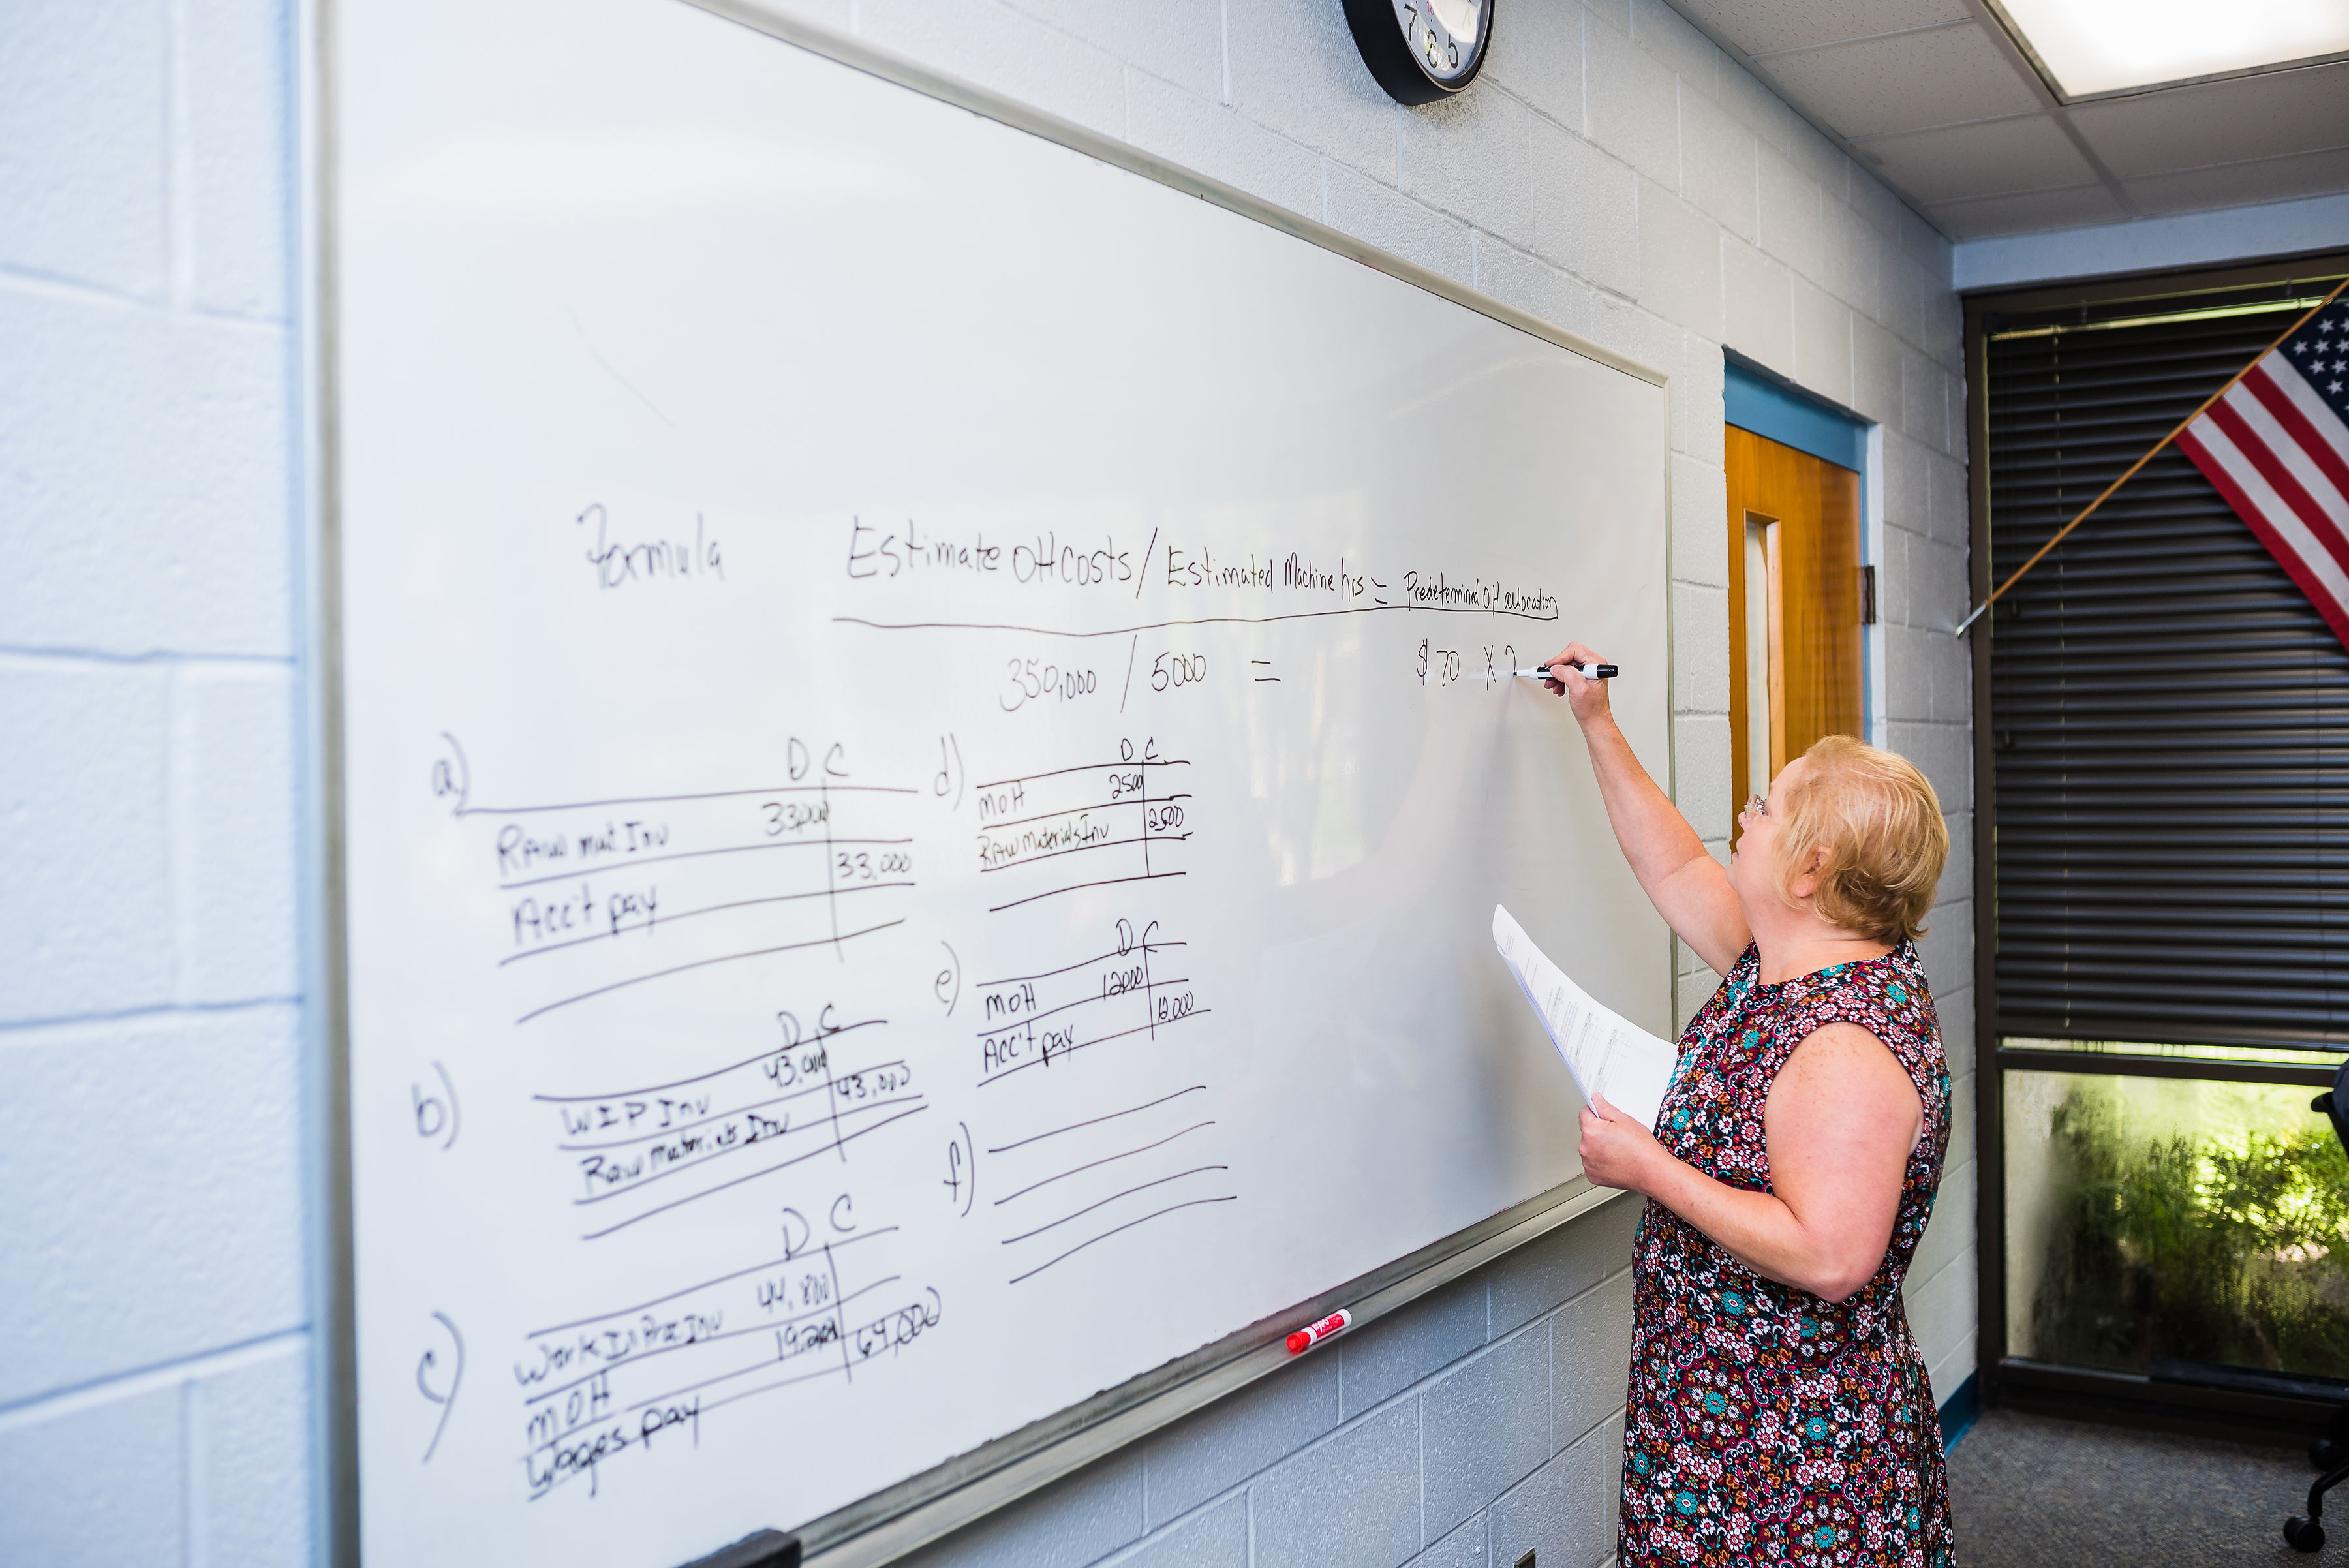 7 6 5
Formula Estimate OH Costs / Estimated Machine hrs = Predetermined OH allocation
350,000 / 5000 = $70 X 2
a)
D C
Raw mat Inv 33,000
33,000
Acc't pay
b)
D C
43,000
WIP Inv 43,000
Raw Materials Inv
c)
D C
Work In Pro Inv 44,800
MOH 19,200
64,000
Wages pay
d)
D C
MOH 2500
Raw Materials Inv 2500
e)
D C
MOH 12000
Acc't pay 12,000
f)
EXPO